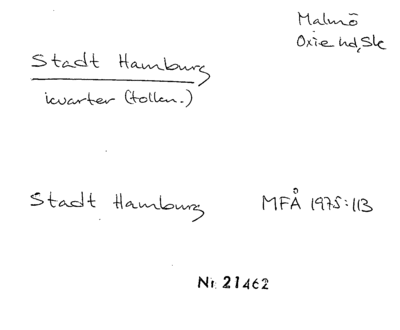 Malmö
Oxie hd, Sk
Stadt Hamburg
kvarter (tolkn.)
Stadt Hamburg MFÅ 1975:113
Nr 21462